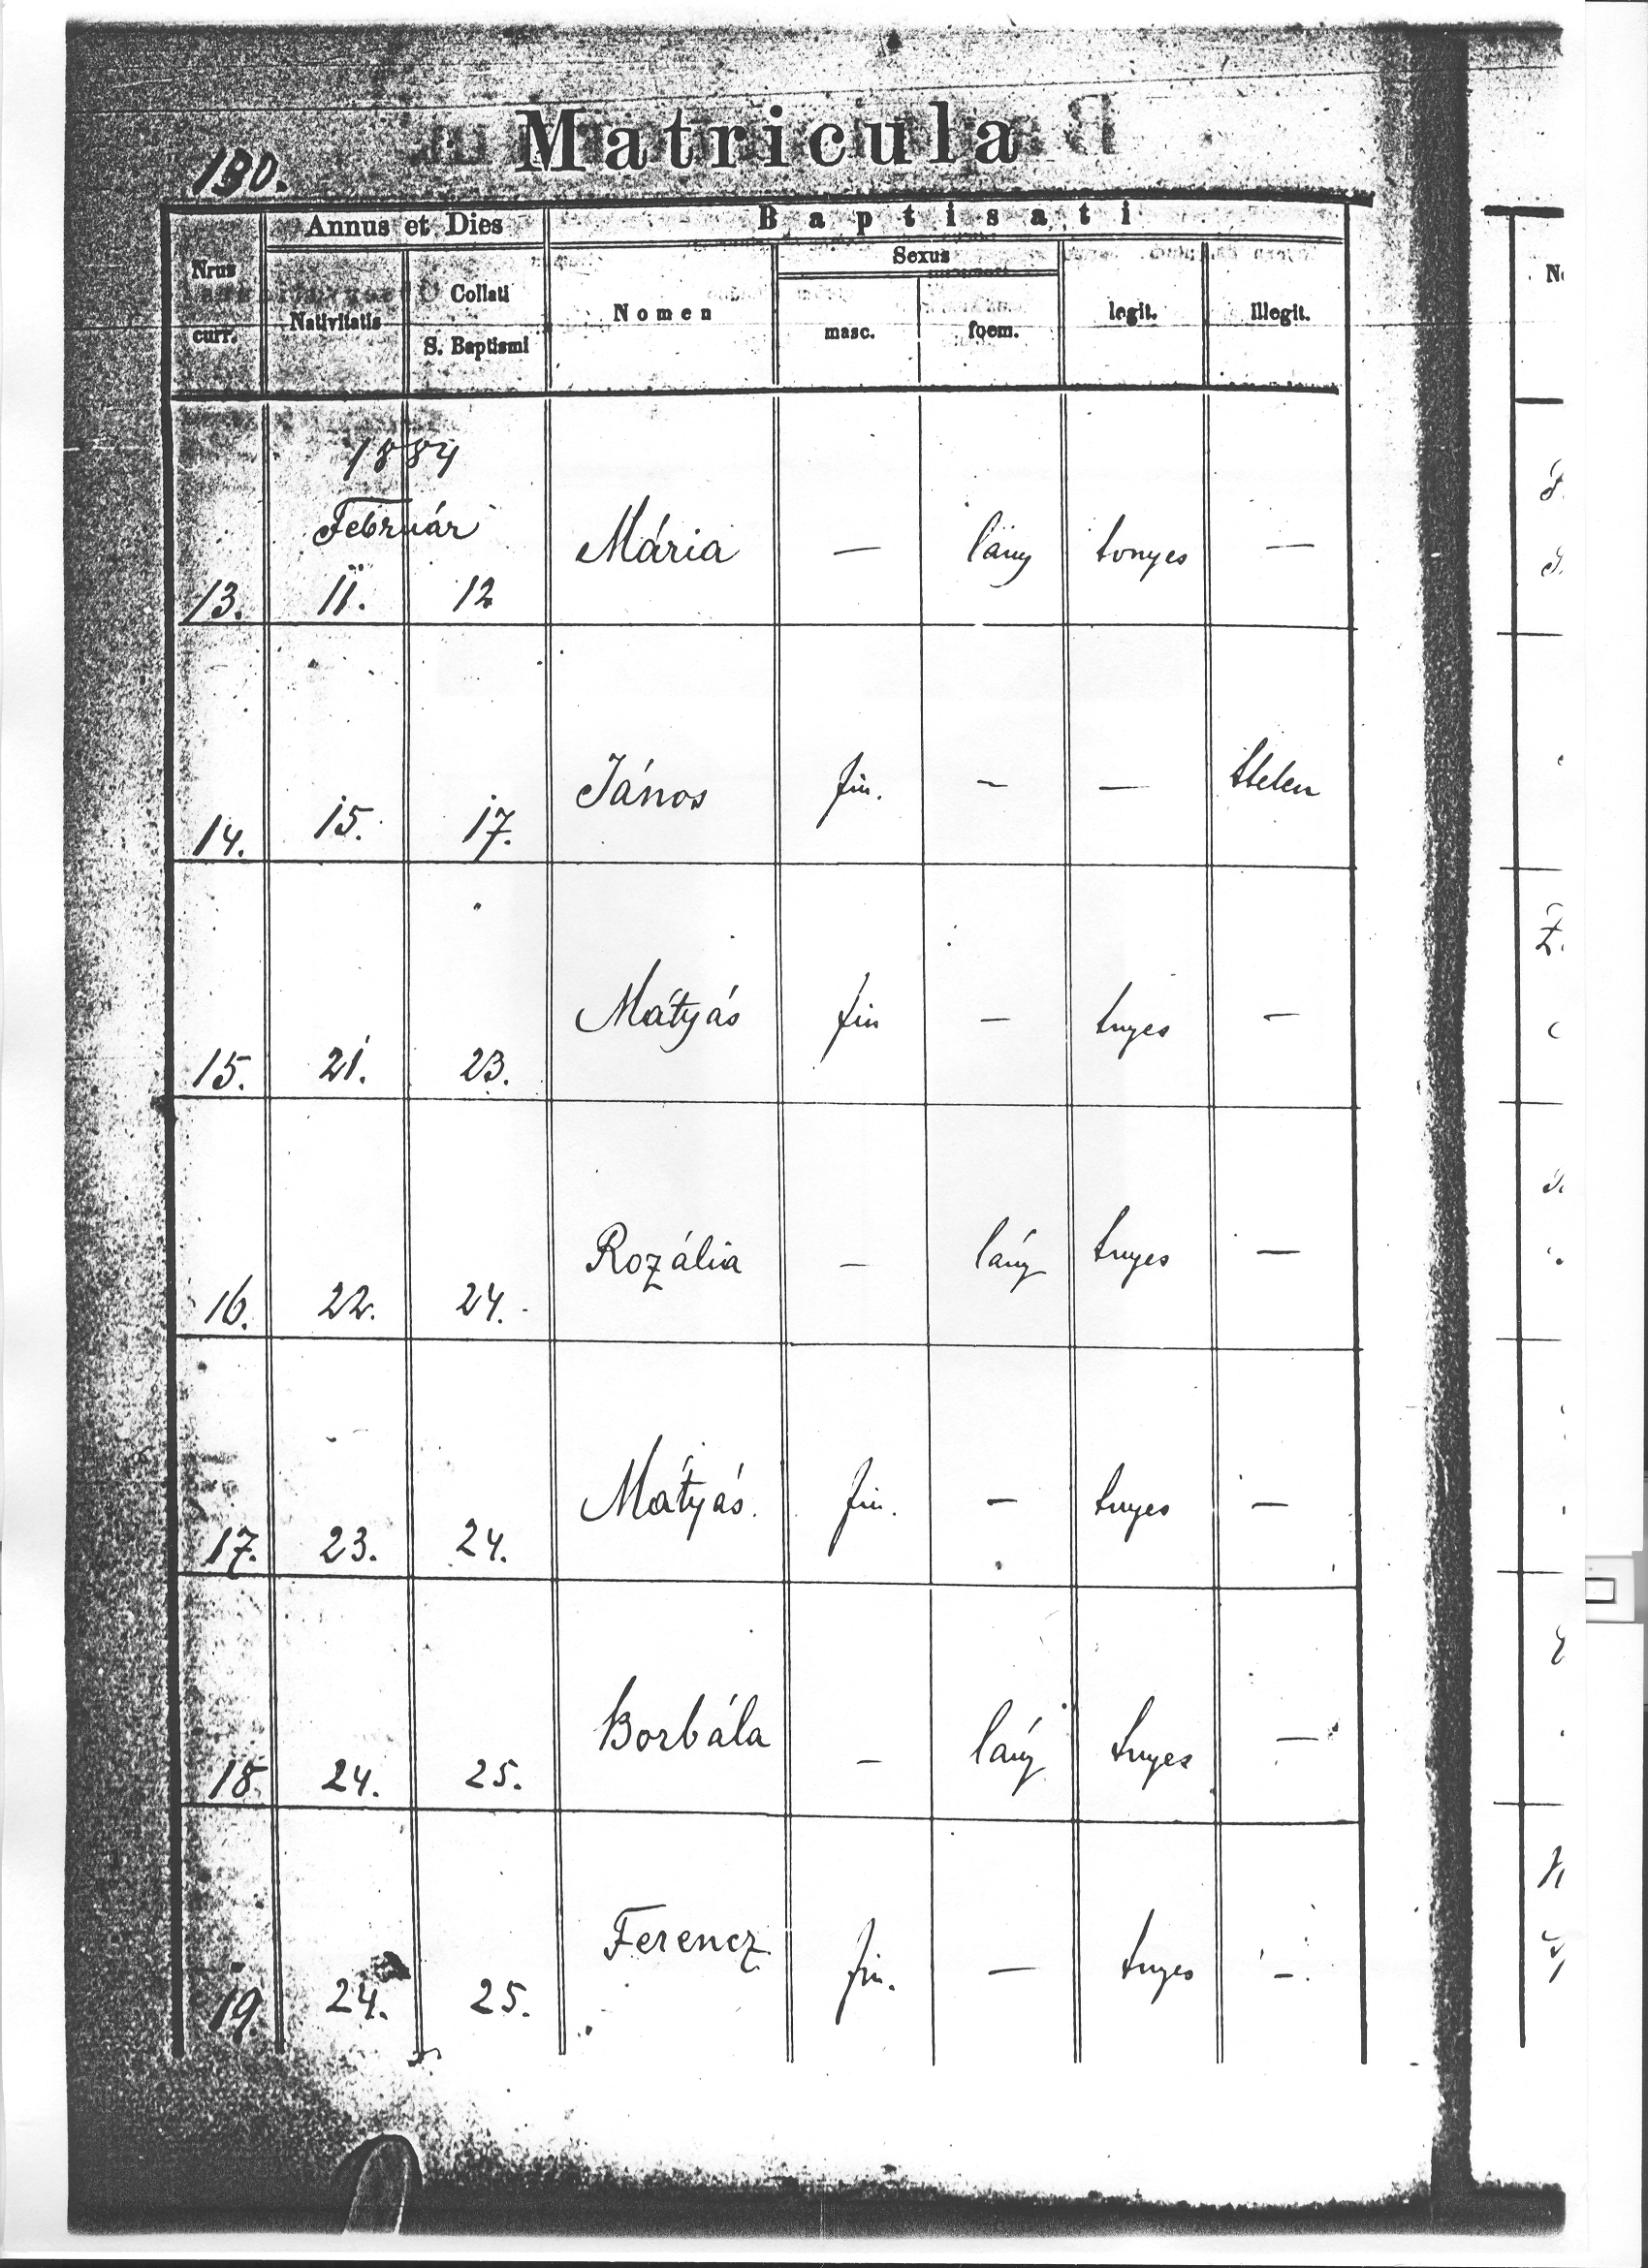 Matricula
130.
Annus et Dies
Baptisati
Nrus
curr.
Nativitatis
Collati
S. Baptismi
Nomen
Sexus
masc.
foem.
legit.
illegit.
1884
Február
13. 11. 12 Mária — lány tvnyes —
14. 15. 17. János fiu. — — ttelen
15. 21. 23. Mátyás fiu — tnyes —
16. 22. 24. Rozália — lány tnyes —
17. 23. 24. Mátyás. fiu. — tnyes —
18 24. 25. Borbála — lány tnyes —
19 24. 25. Ferencz fiu. — tnyes —